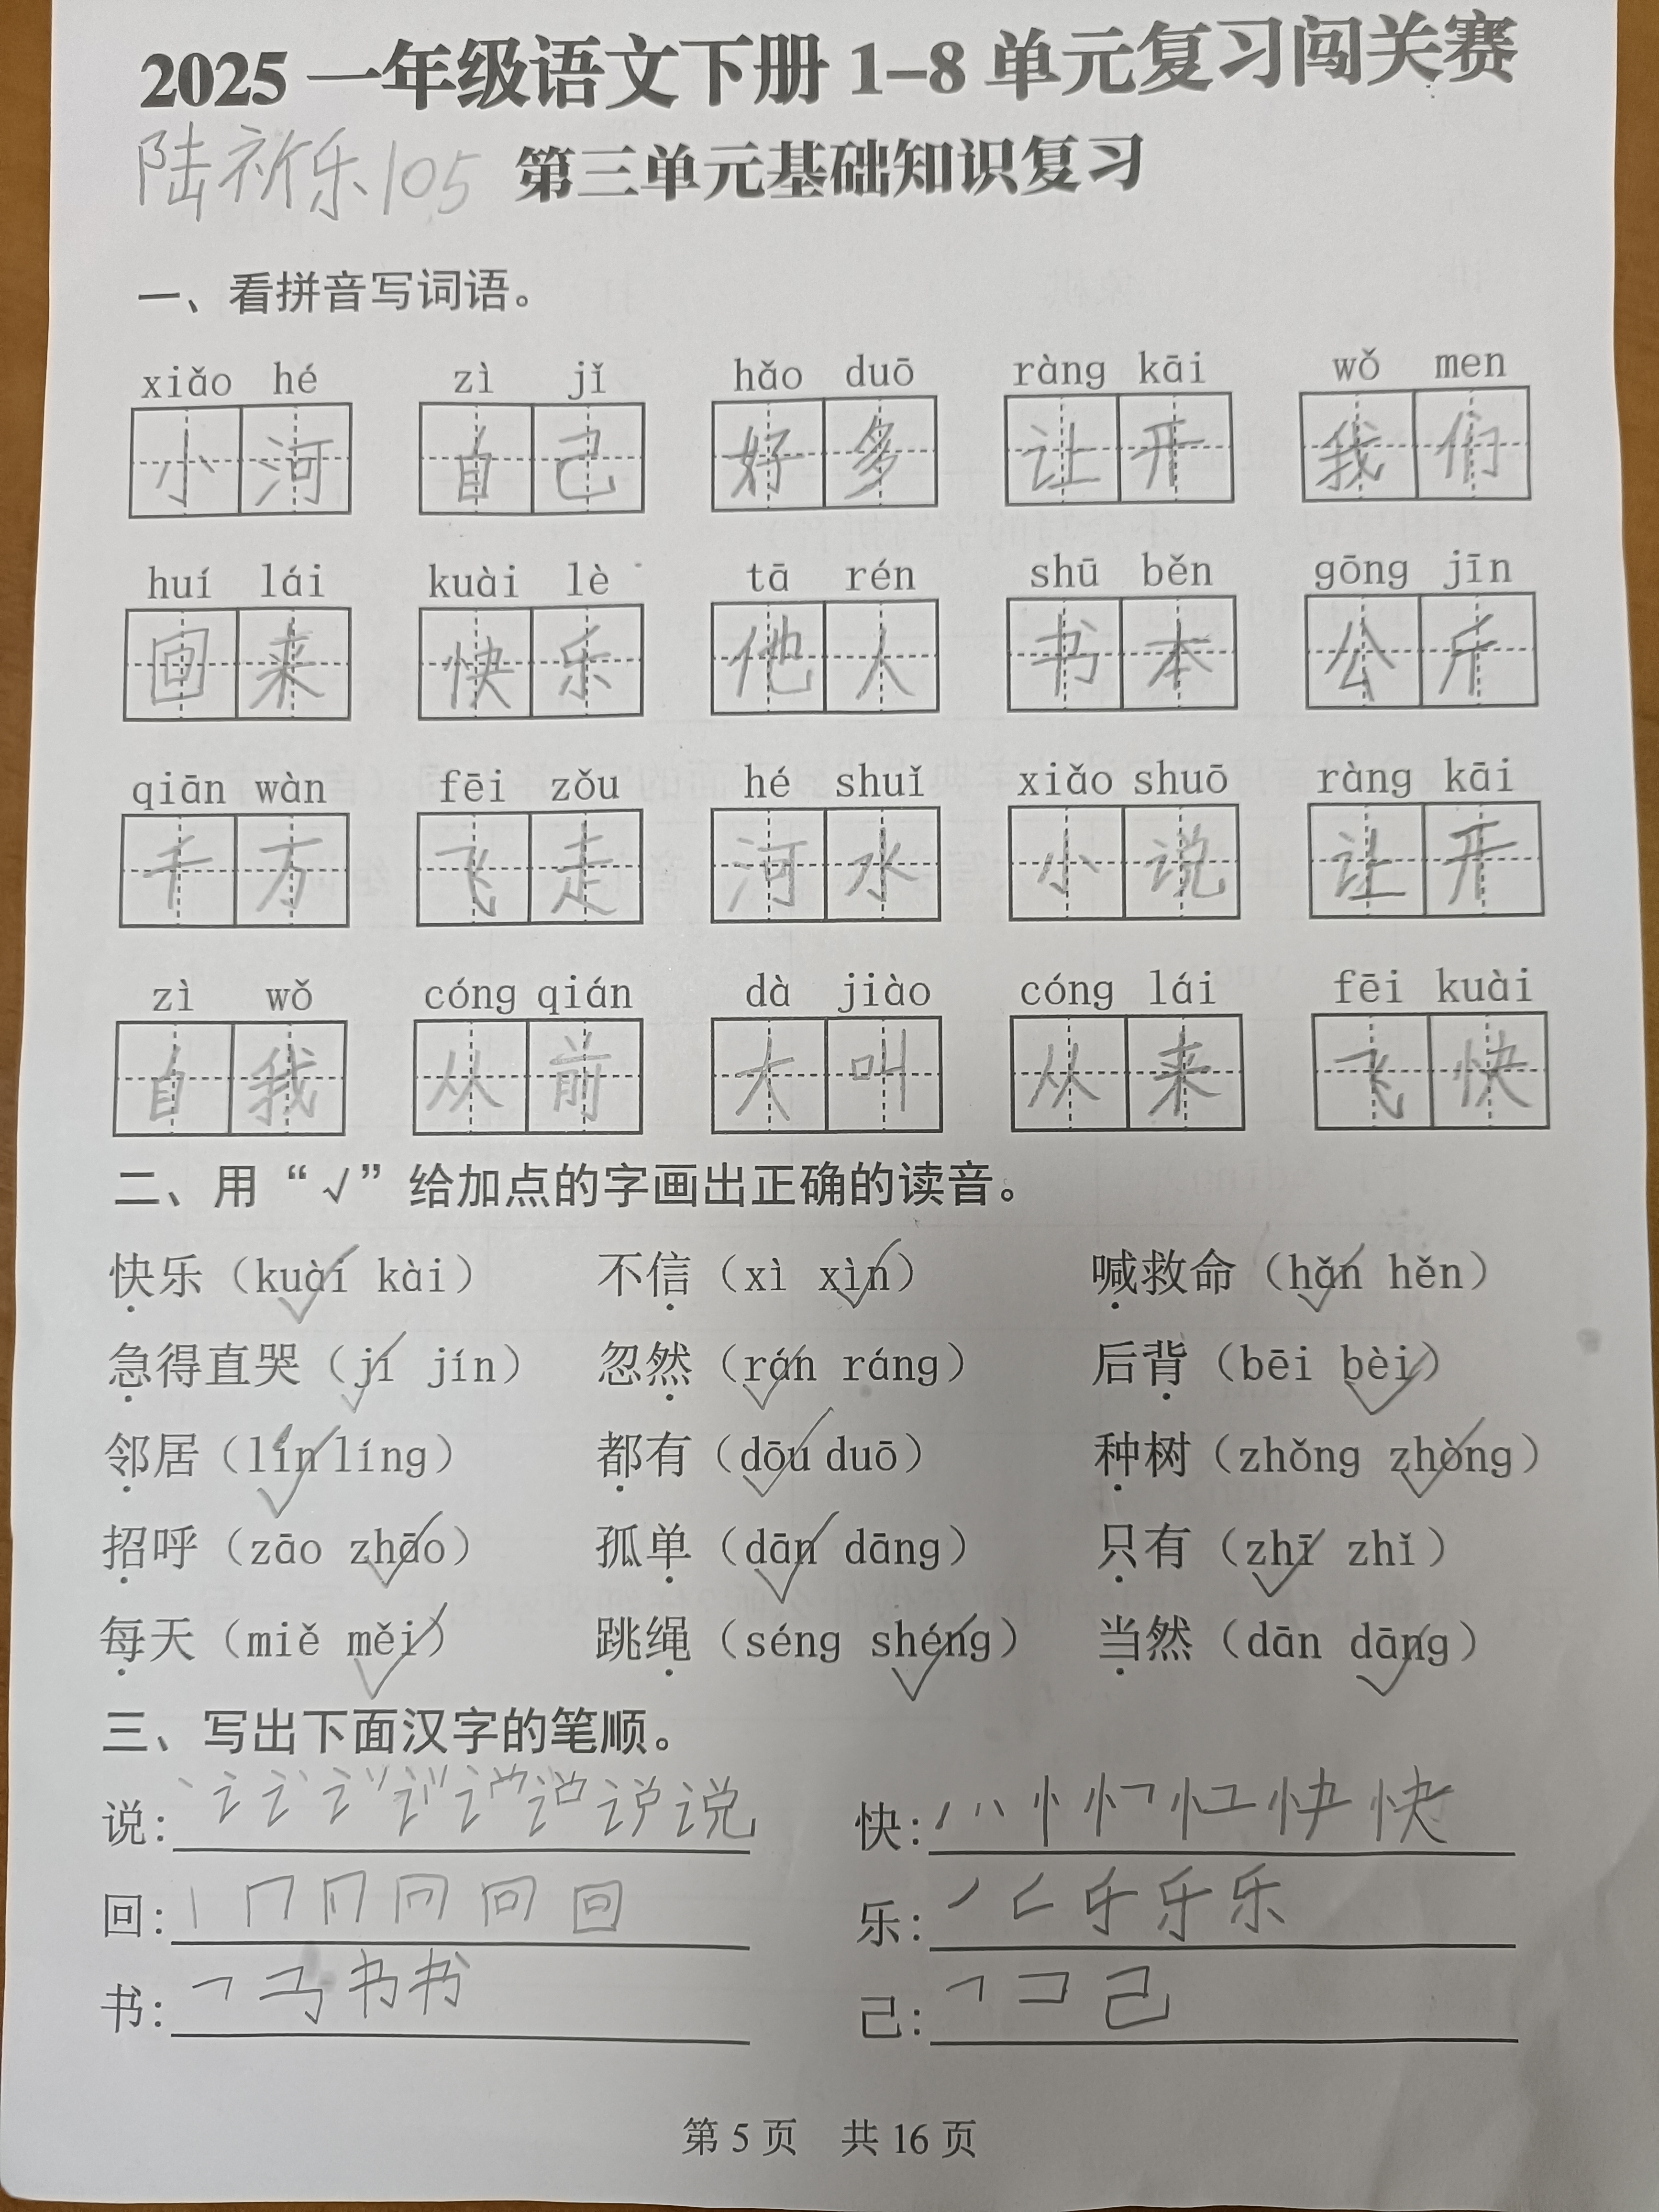 2025 一年级语文下册 1–8 单元复习闯关赛
陆祈乐105 第三单元基础知识复习
一、看拼音写词语。
xiǎo hé zì jǐ hǎo duō ràng kāi wǒ men
小河 自己 好多 让开 我们
huí lái kuài lè tā rén shū běn gōng jīn
回来 快乐 他人 书本 公斤
qiān wàn fēi zǒu hé shuǐ xiǎo shuō ràng kāi
千万 飞走 河水 小说 让开
zì wǒ cóng qián dà jiào cóng lái fēi kuài
自我 从前 大叫 从来 飞快
二、用“√”给加点的字画出正确的读音。
快乐（kuài kài） 不信（xì xìn） 喊救命（hǎn hěn）
急得直哭（jí jín） 忽然（rán ráng） 后背（bēi bèi）
邻居（lín líng） 都有（dōu duō） 种树（zhǒng zhòng）
招呼（zāo zhāo） 孤单（dān dāng） 只有（zhī zhǐ）
每天（miě měi） 跳绳（séng shéng） 当然（dān dāng）
三、写出下面汉字的笔顺。
说： 说 快： 快
回： 回 乐： 乐
书： 书 己： 己
第 5 页 共 16 页